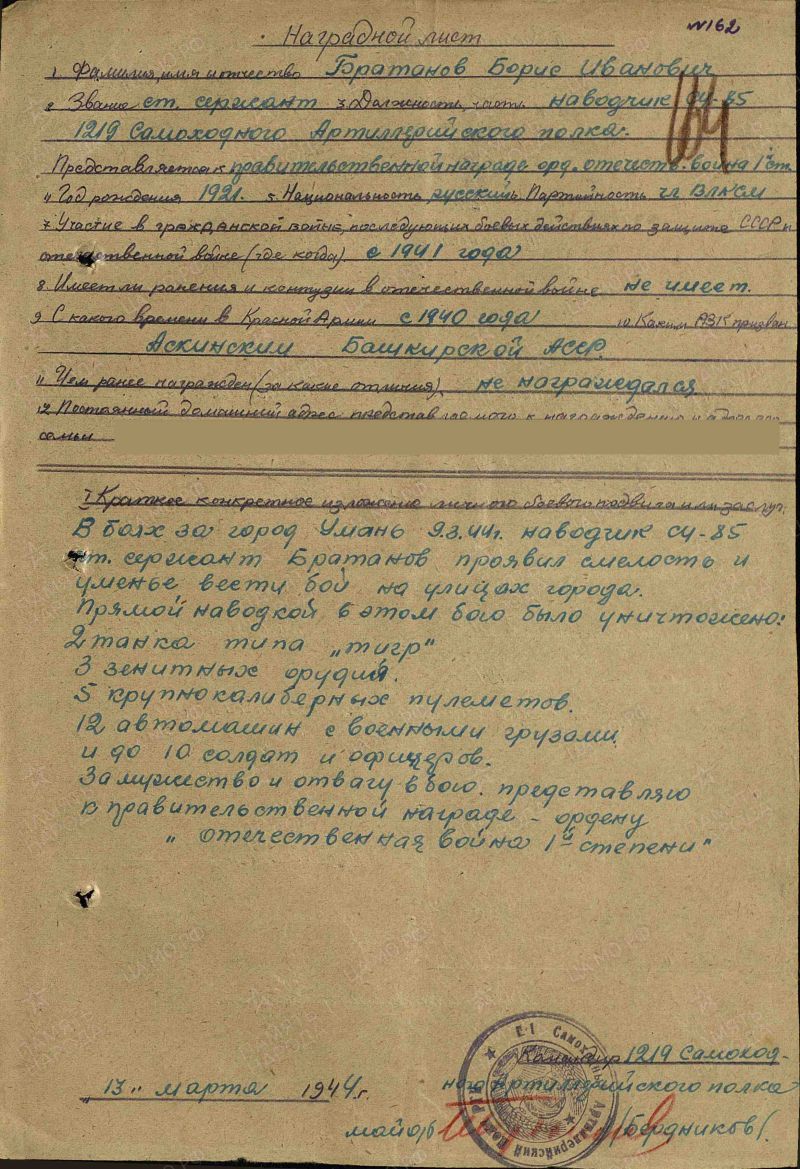 №162
Наградной лист
1. Фамилия, имя и отчество Братанов Борис Иванович
2 Звание ст. сержант 3 Должность, часть наводчик СУ-85
1219 Самоходного Артиллерийского полка.
Представляется к правительственной награде орд. отечеств. война 1 ст
4 Год рождения 1921. 5. Национальность русский 6. Партийность чл ВЛКСМ
7 Участие в гражданской войне, последующих боевых действиях по защите СССР и
отечественной войне (где когда) с 1941 года
8 Имеет ли ранения и контузии в отечественной войне не имеет.
9 С какого времени в Красной Армии с 1940 года 10 Каким РВК призван
Аскинский Башкирской АССР.
11 Чем ранее награжден (за какие отличия) не награждался
12 Постоянный домашний адрес представляемого к награждению и адрес его
семьи
I Краткое конкретное изложение личного боевого подвига или заслуг.
В боях за город Умань 9.3.44г. наводчик СУ-85
ст. сержант Братанов проявил смелость и
уменье вести бой на улицах города.
Прямой наводкой в этом бою было уничтожено:
2 танка типа „тигр"
3 зенитных орудия.
5 крупнокалиберных пулеметов.
12 автомашин с военными грузами
и до 10 солдат и офицеров.
За мужество и отвагу в бою. представляю
к правительственной награде - ордену
„ отечественная война 1й степени"
Командир 1219 Самоход-
„13" марта 1944г. ного Артиллерийского полка
майор /Бердников/.
Самоходный Артиллерийский Полк